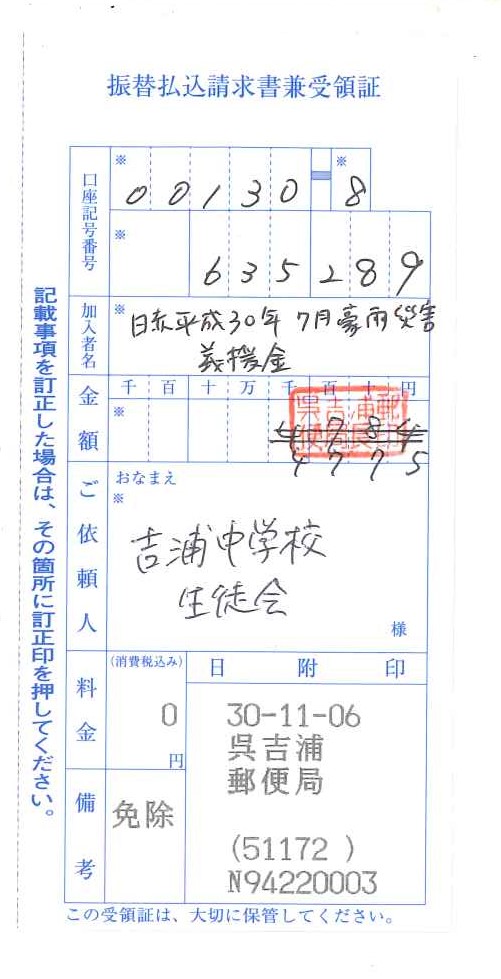 振替払込請求書兼受領証
口座記号番号
※ 00130-※8
※ 635289
加入者名
※ 日赤平成30年7月豪雨災害
義援金
金額
千 百 十 万 千 百 十 円
※ 4784
4775
ご依頼人
おなまえ
※
吉浦中学校
生徒会
様
料金
(消費税込み)
0
円
日附印
30-11-06
呉吉浦
郵便局
(51172 )
N94220003
備考
免除
この受領証は、大切に保管してください。
記載事項を訂正した場合は、その箇所に訂正印を押してください。